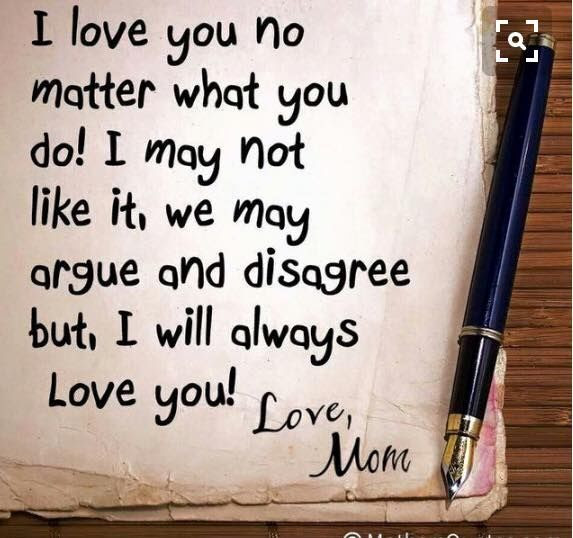 I love you no
matter what you
do! I may not
like it, we may
argue and disagree
but, I will always
Love you!
Love,
Mom